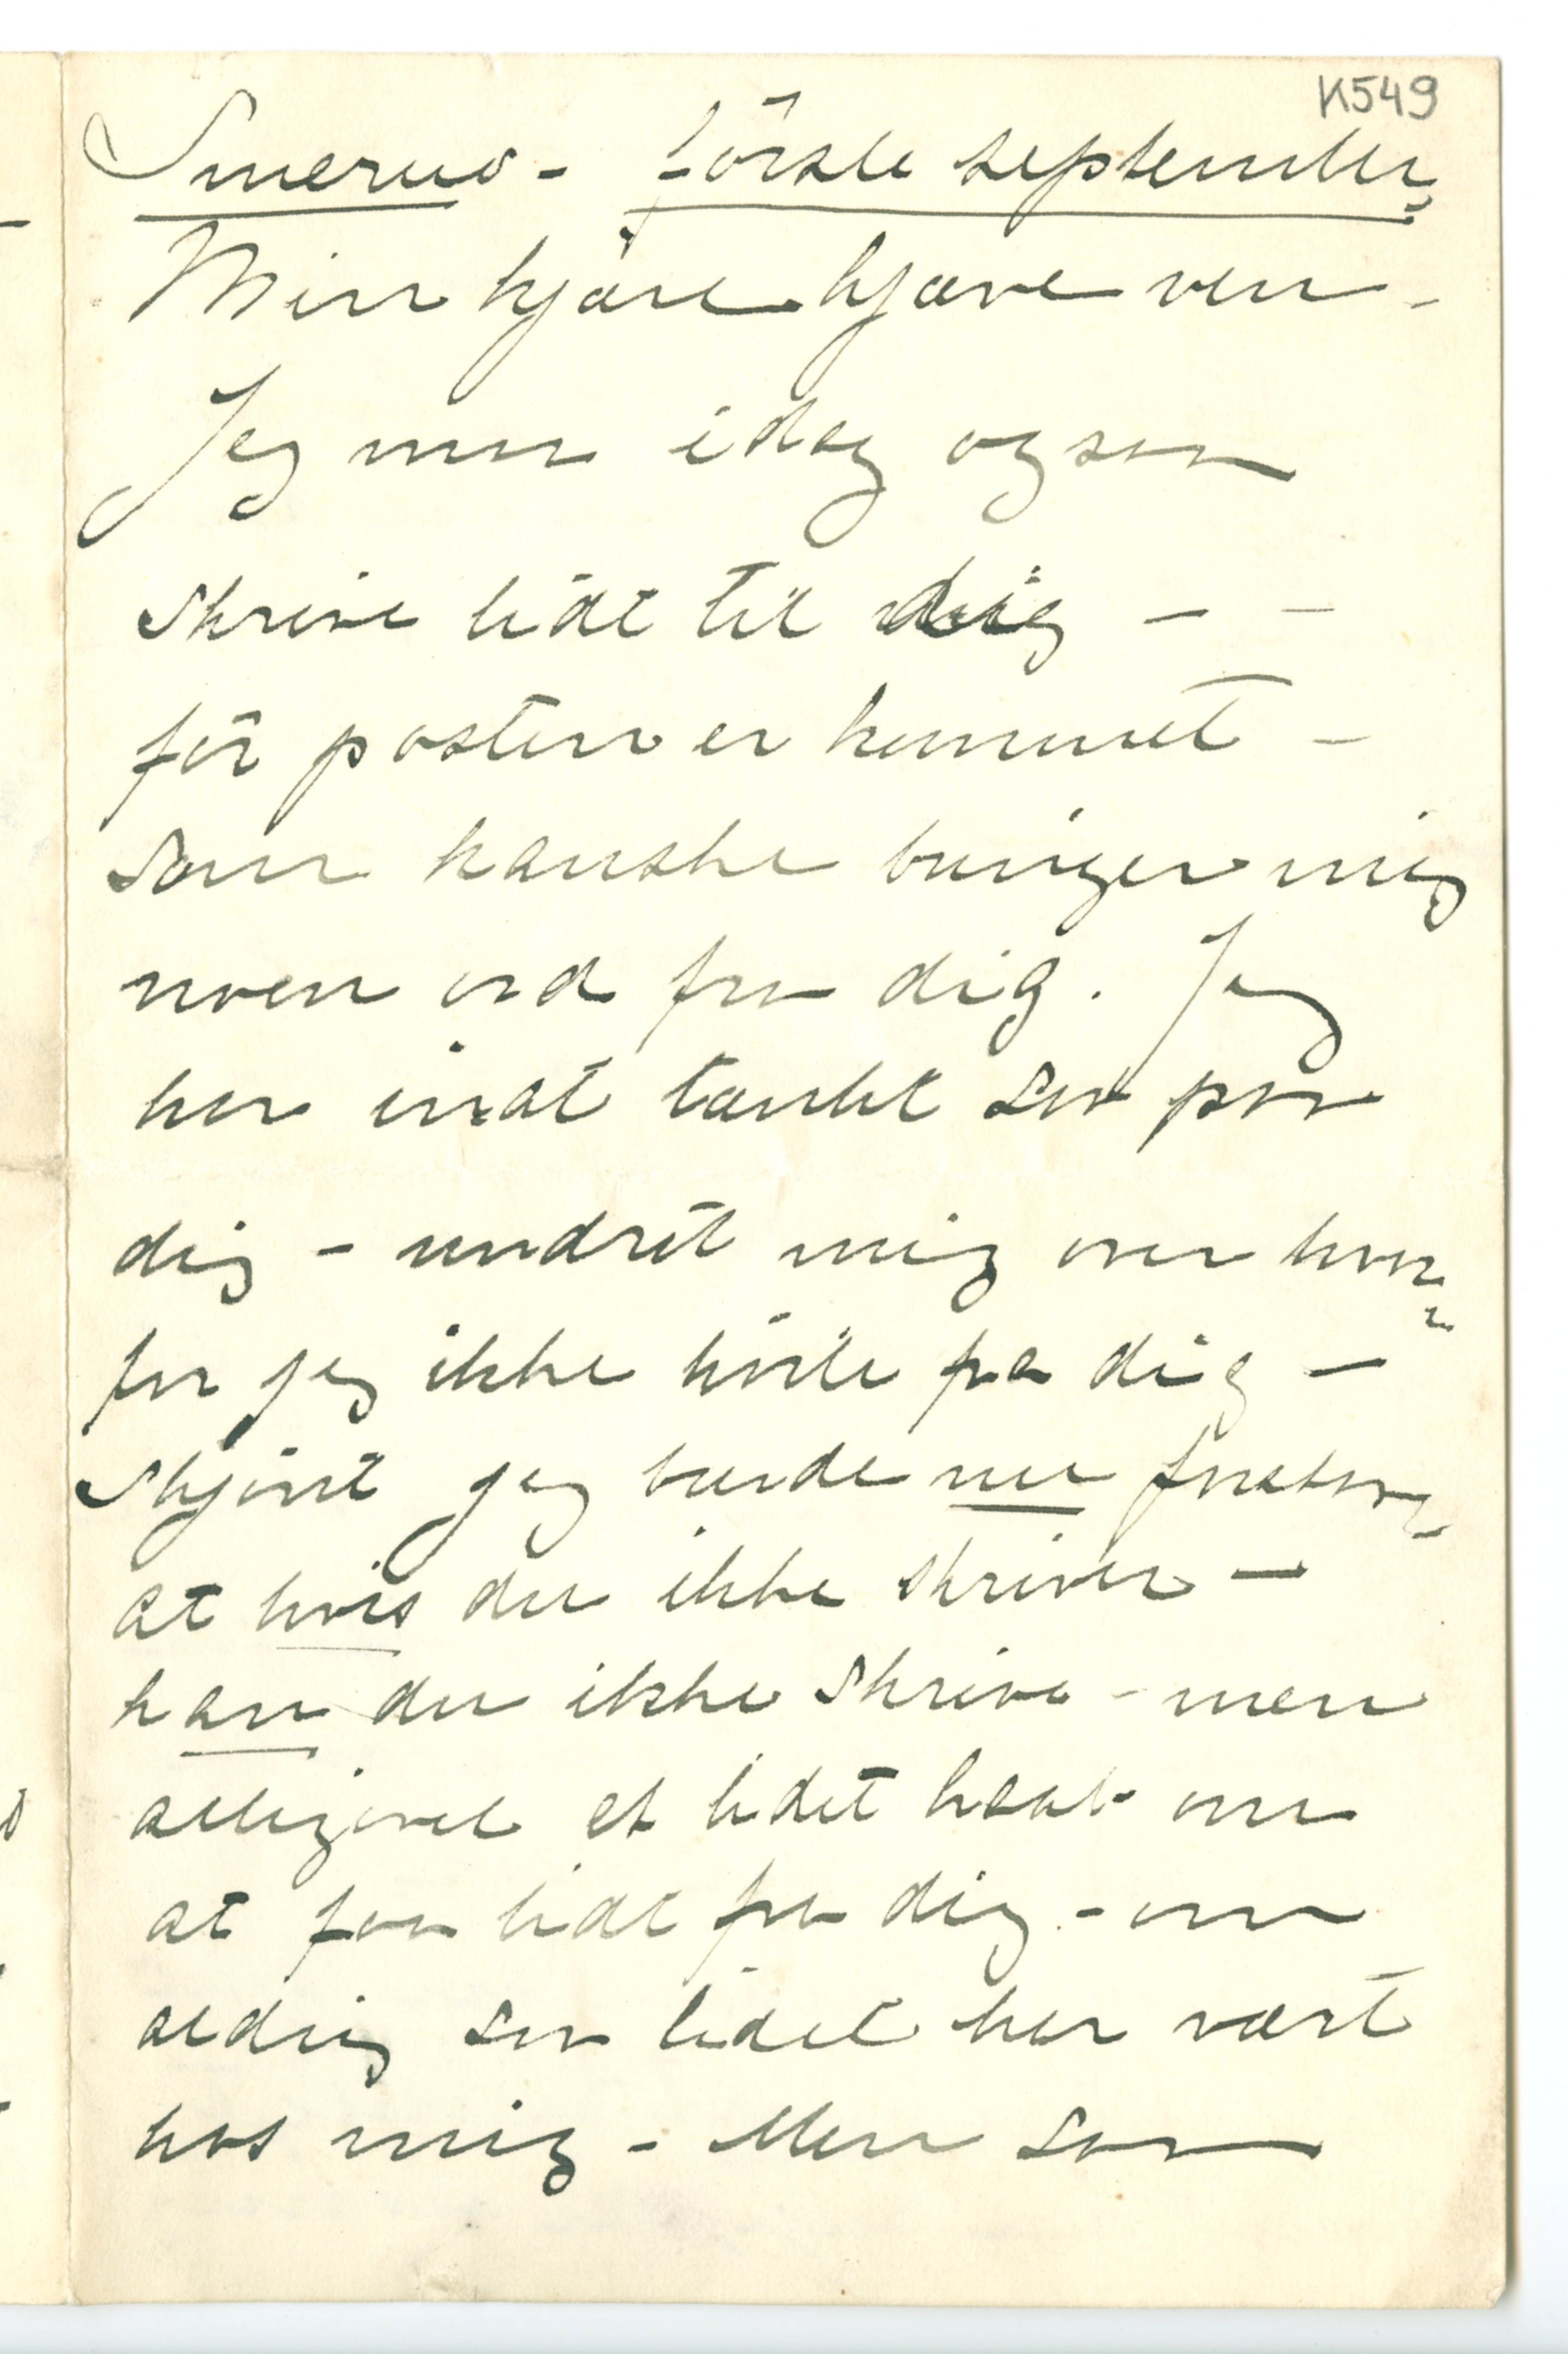 K549
Snerud - første september
Min kjære kjære ven -
Jeg maa idag ogsaa
skrive lidt til dig - -
før posten er kommet -
som kanske bringer mig
noen ord fra dig. Jeg
har inat tænkt saa paa
dig - undret mig over hvor
for jeg ikke hørte fra dig -
skjønt jeg burde nu forstaa
at hvis du ikke skriver -
kan du ikke skrive - men
alligevel et lidet haab om
at faa lidt fra dig - om
aldrig saa lidet har vært
hos mig - Men saa